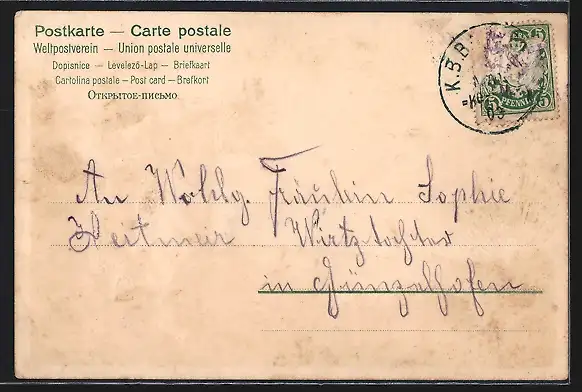 Postkarte — Carte postale
Weltpostverein — Union postale universelle
Dopisnice — Levelező-Lap — Briefkaart
Cartolina postale — Post card — Brefkort
Открытое-письмо
K.B.B.
5 5
PFENNIG
An Wohlg. Fräulein Sophie
Wirtstochter
in Günzelhofen